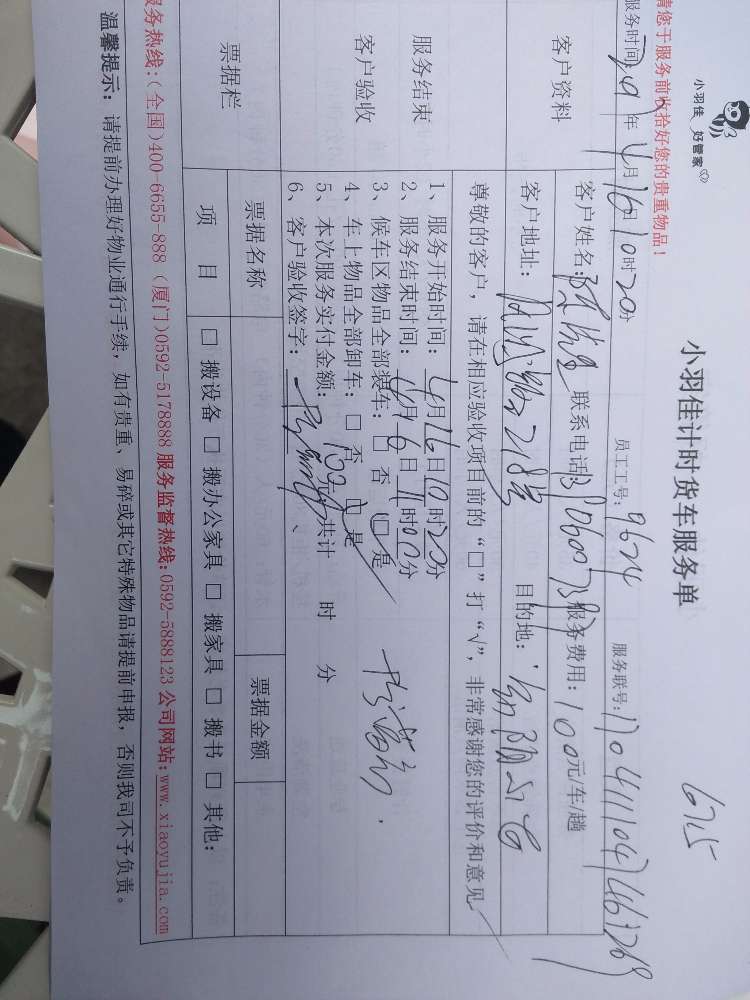 小羽佳 好管家
小羽佳计时货车服务单
6715
请您于服务前收拾好您的贵重物品！
服务时间: 年 4月16日10时20分 员工工号: 9624 服务联号:
客户资料
客户姓名: 联系电话: 服务费用: 100元/车/趟
客户地址: 218号 目的地:
尊敬的客户，请在相应验收项目前的“□”打“√”，非常感谢您的评价和意见
服务结束
客户验收
1、服务开始时间: 4月16日10时20分
2、服务结束时间: 4月16日11时00分
3、候车区物品全部装车: □ 否 □ 是
4、车上物品全部卸车: □ 否 □ 是
5、本次服务实付金额: 100元/共计 时 分
6、客户验收签字:
票据栏
票据名称 票据金额
项目 □ 搬设备 □ 搬办公家具 □ 搬家具 □ 搬书 □ 其他:
服务热线:(全国)400-6655-888 (厦门)0592-5178888 服务监督热线:0592-5888123 公司网站:www.xiaoyujia.com
温馨提示: 请提前办理好物业通行手续，如有贵重、易碎或其它特殊物品请提前申报，否则我司不予负责。